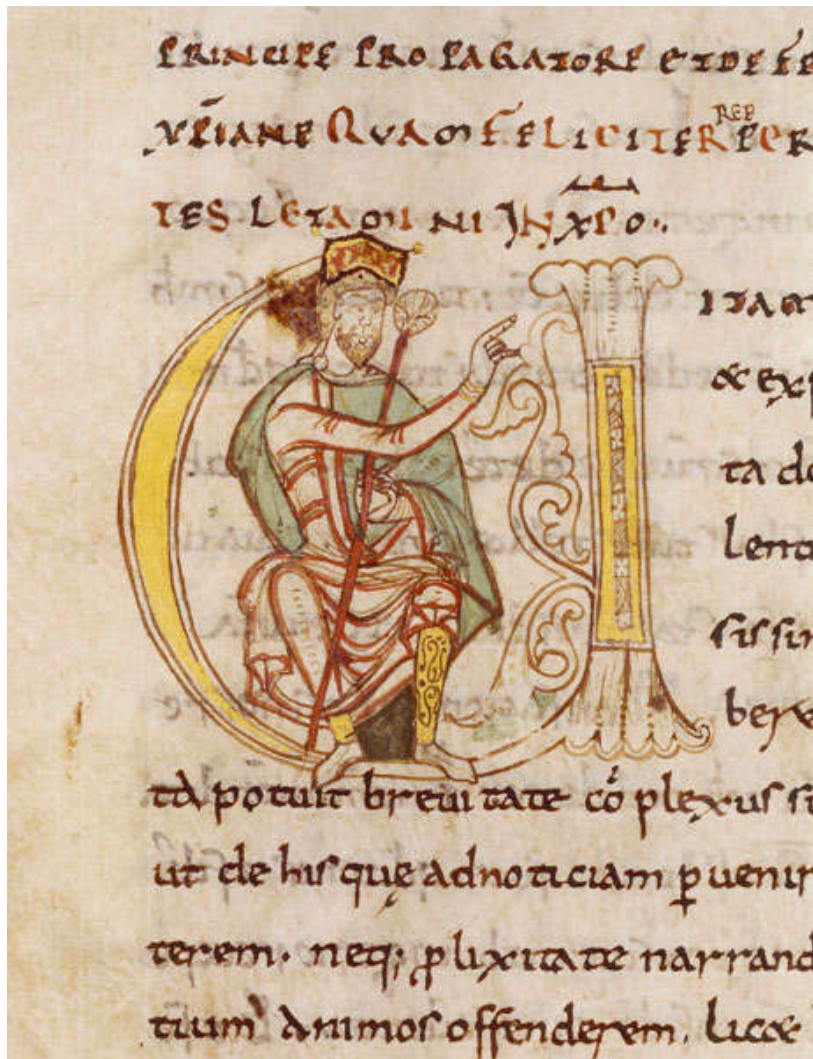 PRINCIPE PROPAGATORE ET DEFE
YPRIANE QVAM FELICITER REP PER
TES LETAOMNI IN XPO..
U ITAM
& exp
ta do
lenti
sissim
berem
tá potuit breuitate cóplexus si
ut de hisquę adnoticiam puenir
terem. neq; plixitate narrand
tium animos offenderem. lic&